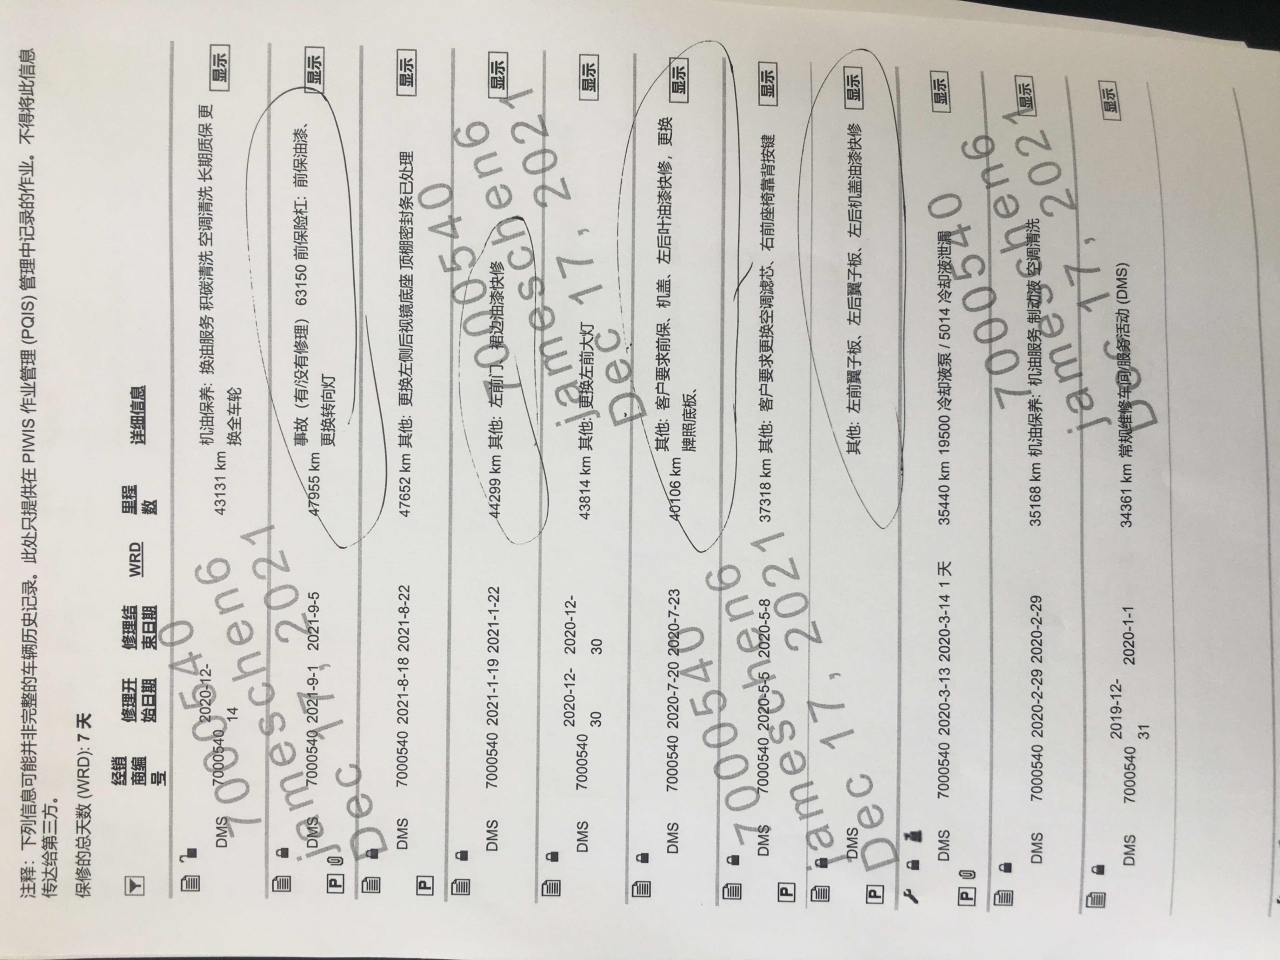 注释：下列信息可能并非完整的车辆历史记录。此处只提供在 PIWIS 作业管理 (PQIS) 管理中记录的作业。不得将此信息
传达给第三方。
保修的总天数 (WRD): 7 天
经销商编号 修理开始日期 修理结束日期 WRD 里程数 详细信息
DMS 7000540 2020-12-14 43131 km 机油保养：换油服务 积碳清洗 空调清洗 长期质保 更 显示
换全车轮
DMS 7000540 2021-9-1 2021-9-5 47955 km 事故（有/没有修理） 63150 前保险杠：前保油漆、 显示
更换转向灯
P
DMS 7000540 2021-8-18 2021-8-22 47652 km 其他：更换左侧后视镜底座 顶棚密封条已处理 显示
P
DMS 7000540 2021-1-19 2021-1-22 44299 km 其他：左前门、裙边油漆快修 显示
DMS 7000540 2020-12-30 2020-12-30 43814 km 其他：更换左前大灯 显示
DMS 7000540 2020-7-20 2020-7-23 40106 km 其他：客户要求前保、机盖、左后叶油漆快修，更换 显示
牌照底板、
DMS 7000540 2020-5-5 2020-5-8 37318 km 其他：客户要求更换空调滤芯、右前座椅靠背按键 显示
P
DMS 其他：左前翼子板、左后翼子板、左后机盖油漆快修 显示
P
DMS 7000540 2020-3-13 2020-3-14 1 天 35440 km 19500 冷却液泵 / 5014 冷却液泄漏 显示
P
DMS 7000540 2020-2-29 2020-2-29 35168 km 机油保养：机油服务 制动液 空调清洗 显示
DMS 7000540 2019-12-31 2020-1-1 34361 km 常规维修车间/服务活动 (DMS) 显示
7000540
jameschen6
Dec 17, 2021
7000540
jameschen6
Dec 17, 2021
7000540
jameschen6
Dec 17, 2021
7000540
jameschen6
Dec 17, 2021